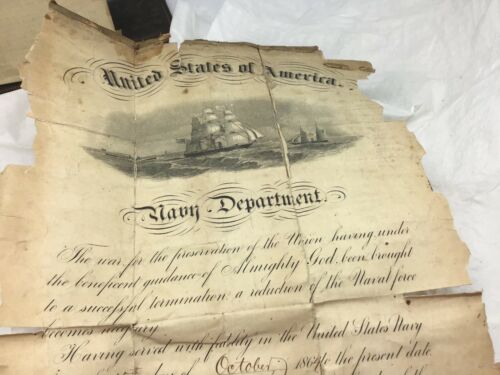 United States of America.
Navy Department.
The war for the preservation of the Union having under
the beneficent guidance of Almighty God, been brought
to a successful termination, a reduction of the Naval force
becomes necessary.
Having served with fidelity in the United States Navy
day of October, 1864 to the present date,
of the